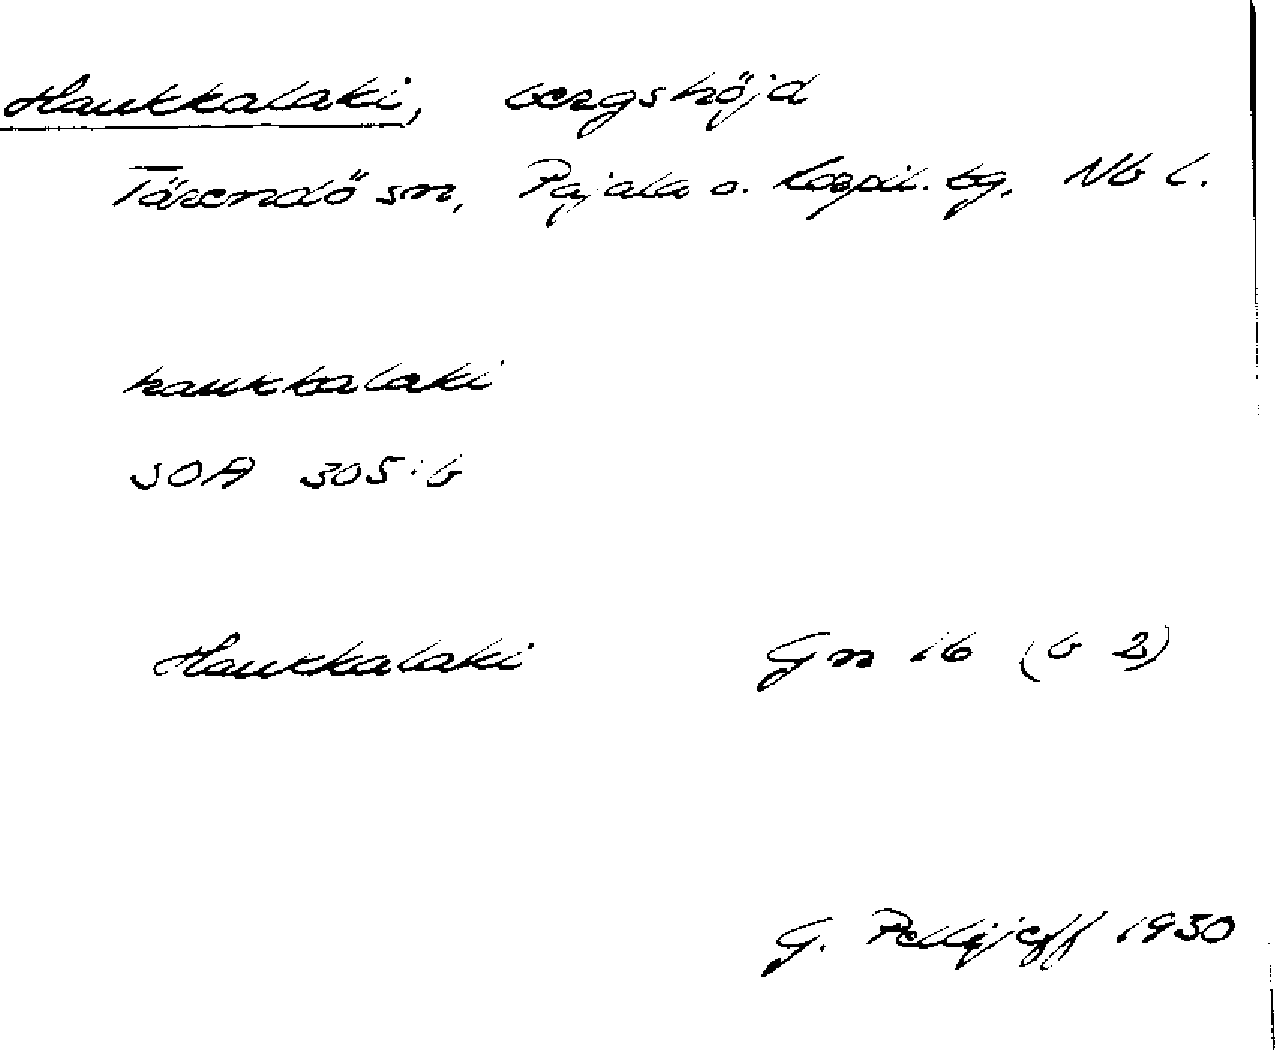 Haukkalaki, bergshöjd
Tärendö sn, Pajala o. Korpil. tg, Nb l.
haukkalaki
SOA 305:b
Haukkalaki Gn 16 (b 2)
G. Pellijeff 1950